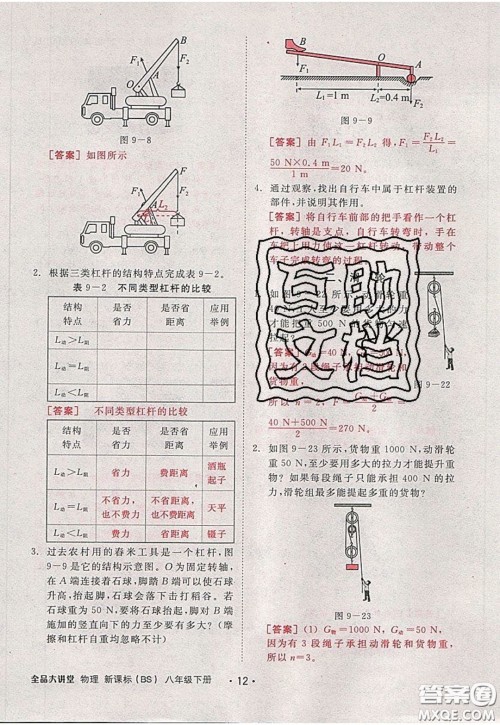 F₁
A
O
F₂
图 9-8
[答案] 如图所示
F₁
A
L₂
F₂
2. 根据三类杠杆的结构特点完成表 9-2。
表 9-2 不同类型杠杆的比较
结构特点 是否省力 是否省距离 应用举例
L动>L阻
L动=L阻
L动<L阻
[答案] 不同类型杠杆的比较
结构特点 是否省力 是否省距离 应用举例
L动>L阻 省力 费距离 酒瓶起子
L动=L阻 不省力,也不费力 不省距离,也不费距离 天平
L动<L阻 费力 省距离 镊子
3. 过去农村用的舂米工具是一个杠杆,图
9-9是它的结构示意图。O为固定转轴,
在A端连接着石球,脚踏B端可以使石球
升高,抬起脚,石球会落下击打稻谷。若
石球重为50 N,要将石球抬起,脚对B端
施加的竖直向下的力至少要多大?(摩
擦和杠杆自重均忽略不计)
B
O
A
F₁
F₂
L₁=1 m
L₂=0.4 m
图 9-9
[答案] 由 F₁L₁=F₂L₂ 得,F₁=F₂L₂/L₁=
50 N×0.4 m/1 m=20 N。
4. 通过观察,找出自行车中属于杠杆装置的
部件,并说明其作用。
[答案] 将自行车前部的把手看作一个杠
杆,转轴是支点,自行车转弯时,手在
车把上用力使这一杠杆转动,带动整个
车子完成转弯的过程
1. 如图
才能把重500 N
图 9-22
[答案] G动=40 N,G
因为
物重,
所以 n=2,F=
40 N+500 N/2=270 N。
2. 如图9-23所示,货物重1000 N,动滑轮
重50 N,至少要用多大的拉力才能提升重
物?如果每段绳子只能承担400 N的拉
力,滑轮组最多能提起多重的货物?
图 9-23
[答案] (1) G物=1000 N,G动=50 N,
因为有3段绳子承担动滑轮和货物重,
所以n=3。
互助
文档
全品大讲堂 物理 新课标(BS) 八年级下册 ·12·
答案圈
MXQE.COM